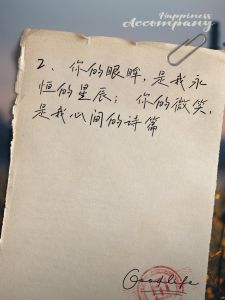 Happiness
Accompany
2、你的眼眸,是我永
恒的星辰; 你的微笑,
是我心间的诗篇
Goodlife